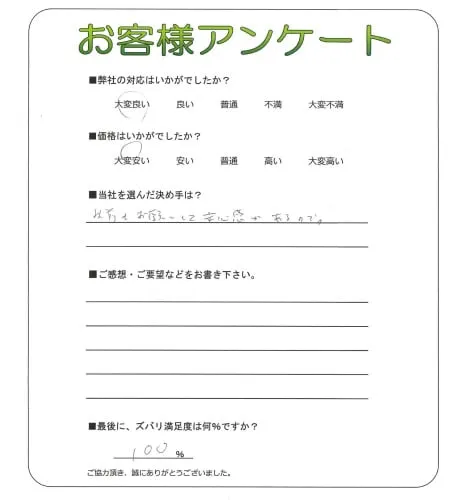 お客様アンケート
■弊社の対応はいかがでしたか？
大変良い 良い 普通 不満 大変不満
■価格はいかがでしたか？
大変安い 安い 普通 高い 大変高い
■当社を選んだ決め手は？
以前もお願いして安心感があるので。
■ご感想・ご要望などをお書き下さい。
■最後に、ズバリ満足度は何%ですか？
100 %
ご協力頂き、誠にありがとうございました。